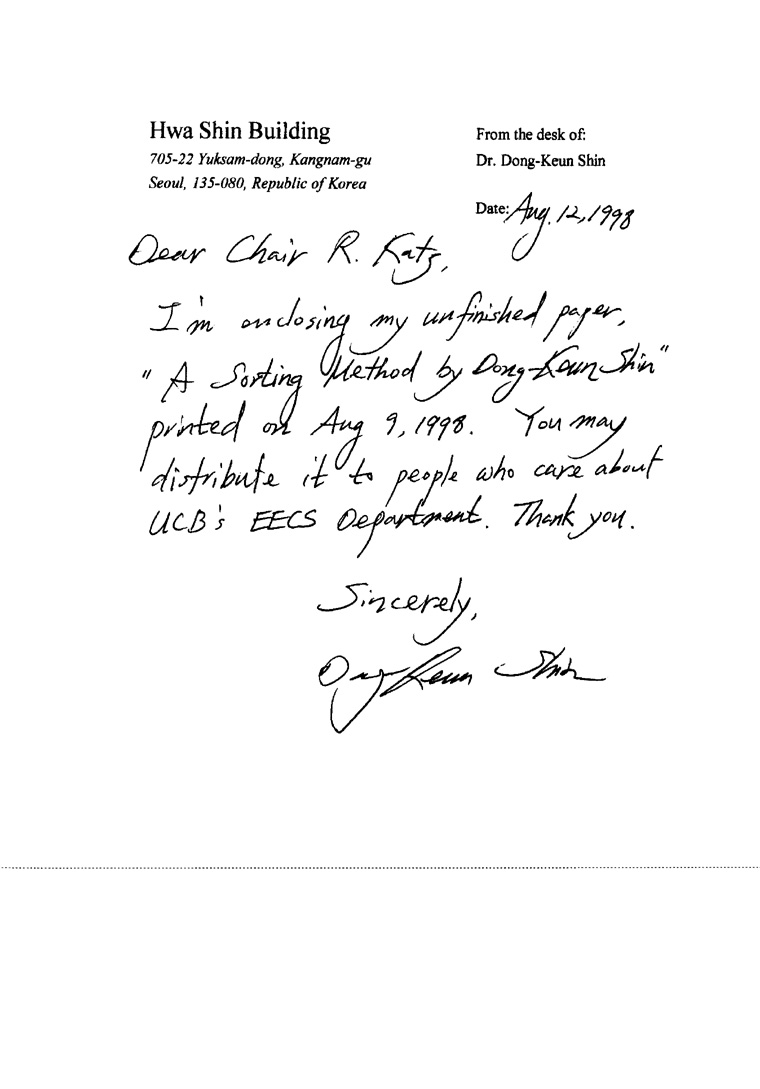 Hwa Shin Building
705-22 Yuksam-dong, Kangnam-gu
Seoul, 135-080, Republic of Korea
From the desk of:
Dr. Dong-Keun Shin
Date: Aug. 12, 1998
Dear Chair R. Katz,
I'm enclosing my unfinished paper,
"A Sorting Method by Dong-Keun Shin"
printed on Aug 9, 1998. You may
distribute it to people who care about
UCB's EECS Department. Thank you.
Sincerely,
Dong-Keun Shin